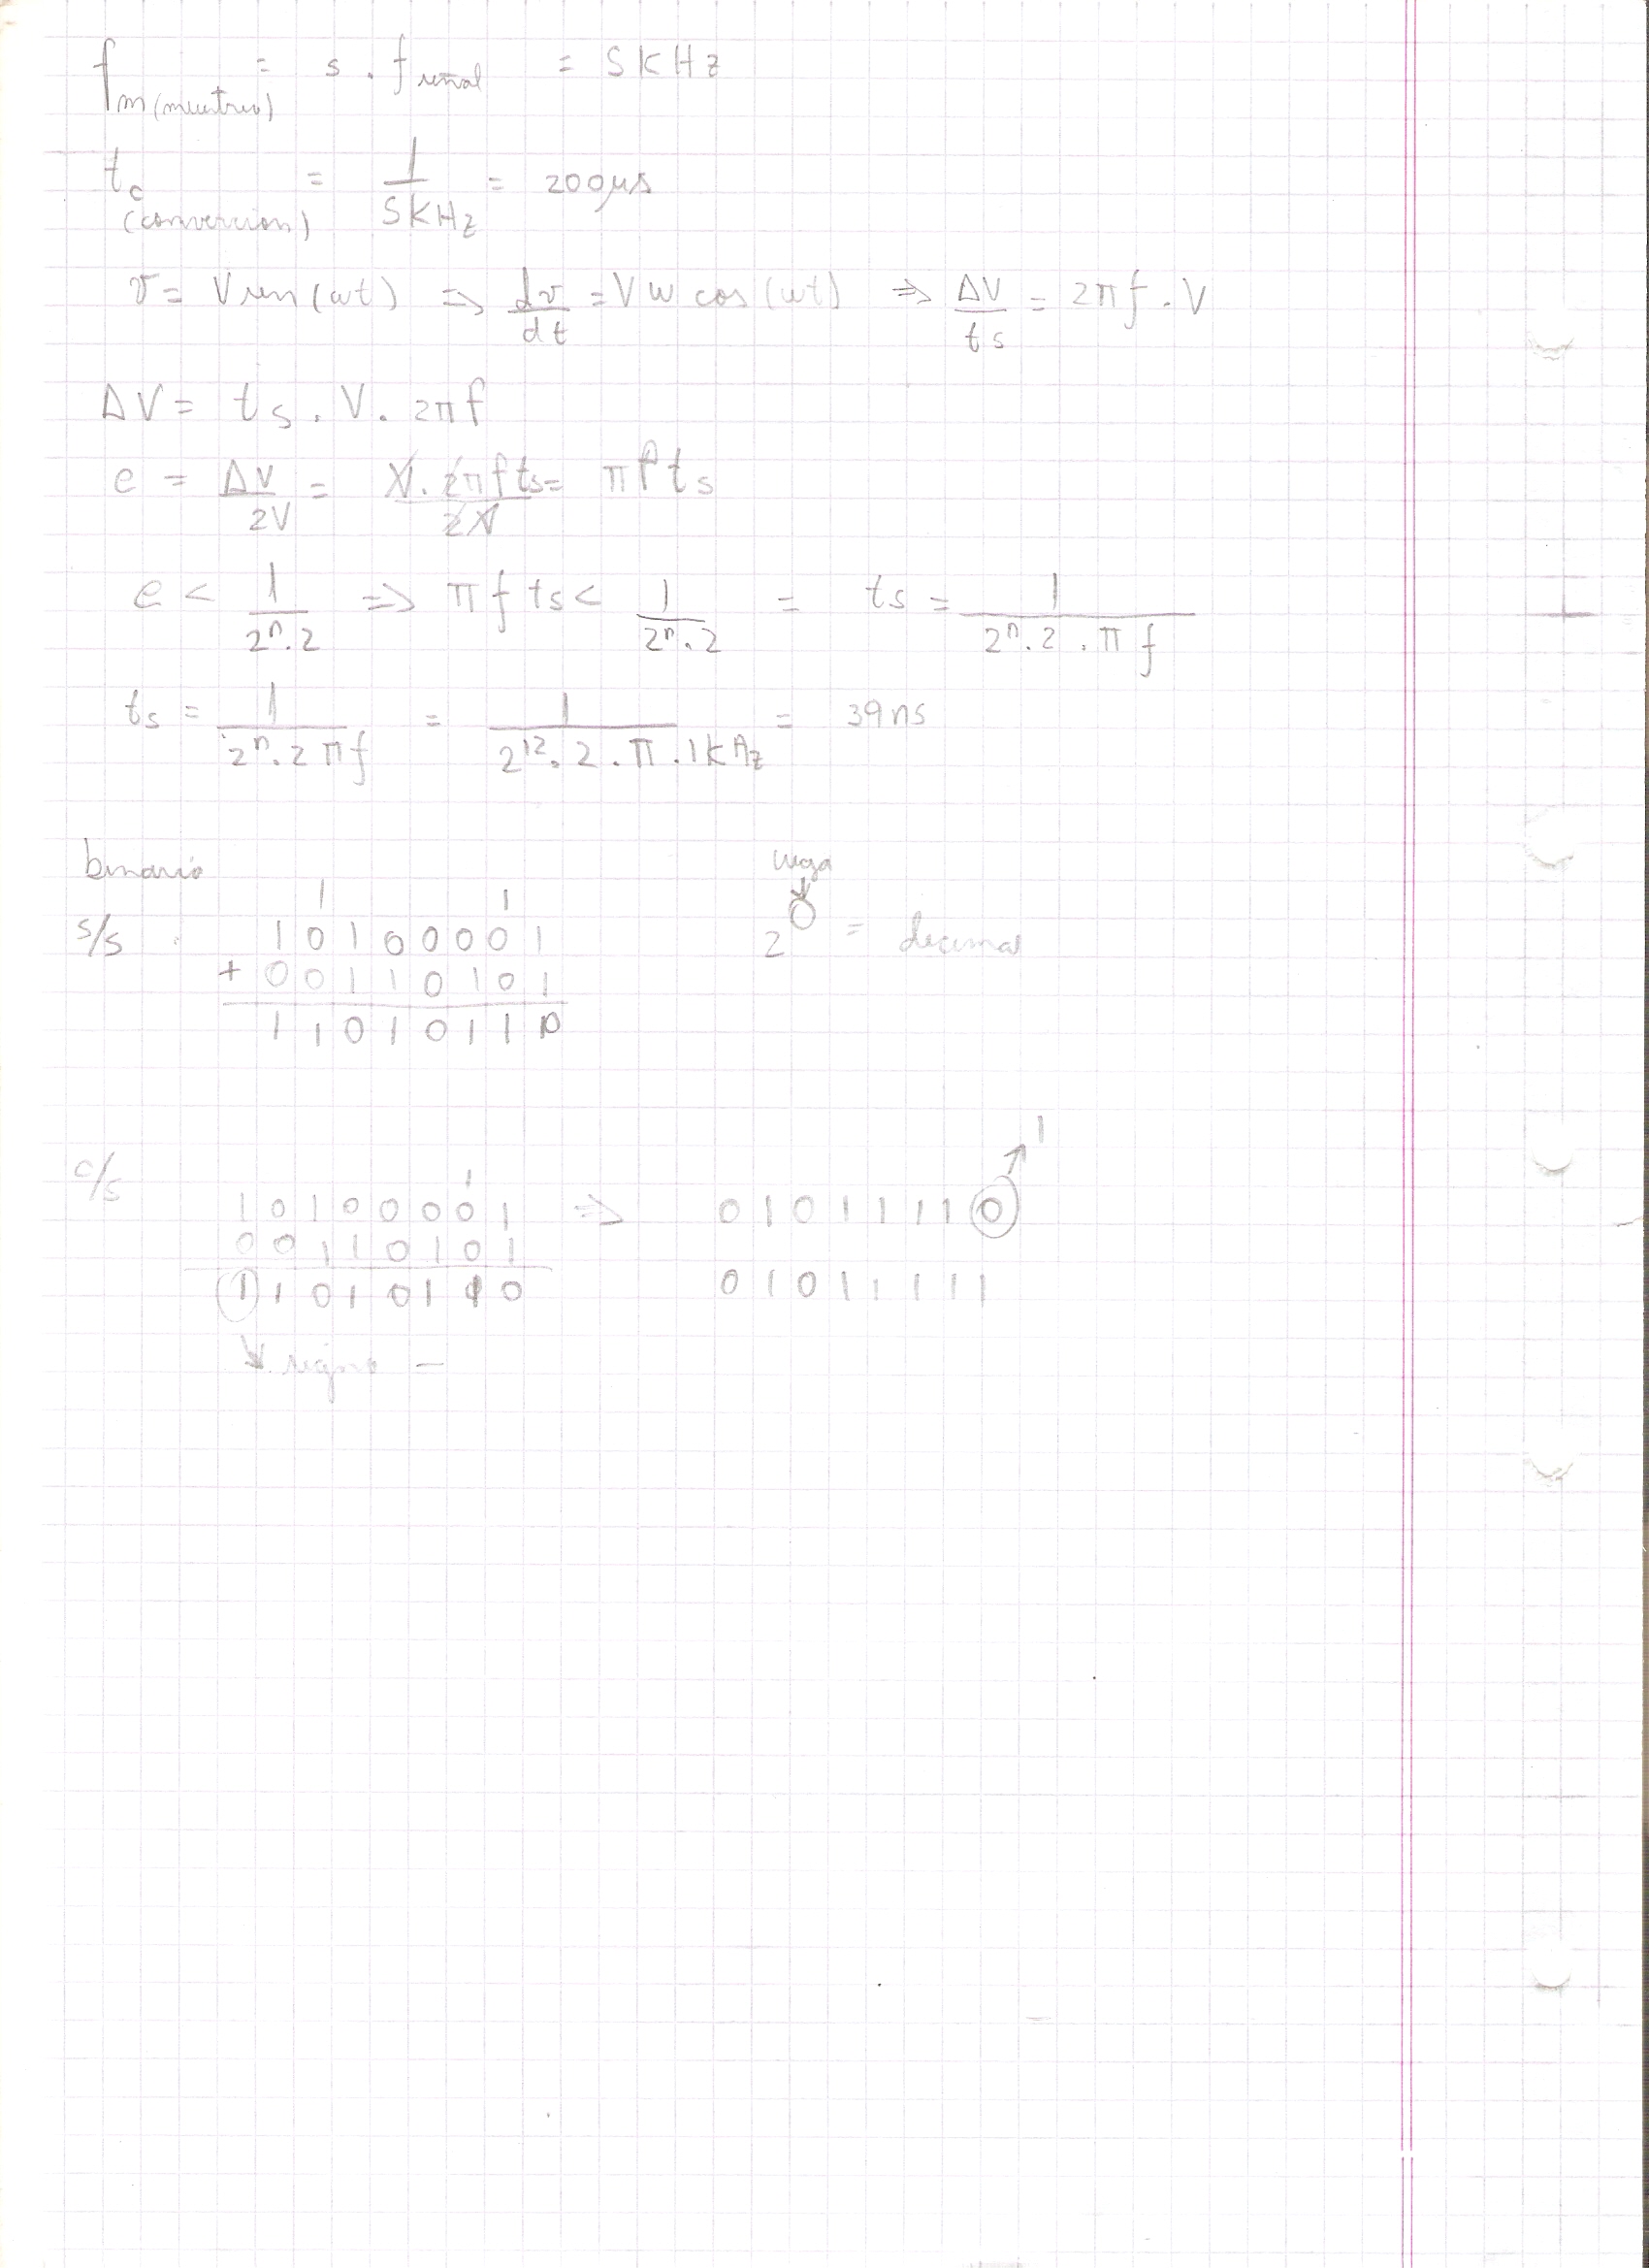 fm (muestreo) = 5 . f señal = 5KHz
tc (conversion) = 1/5KHz = 200μs
v = V sen (ωt) ⇒ dv/dt = V w cos (wt) ⇒ ΔV/ts = 2πf . V
ΔV = ts . V . 2πf
e = ΔV/2V = V. 2πf ts/2V = πf ts
e < 1/2ⁿ.2 ⇒ π f ts < 1/2ⁿ.2 = ts = 1/2ⁿ.2.π f
ts = 1/2ⁿ.2πf = 1/2¹².2.π.1KHz = 39ns
binario
1 1
s/s 10100001
+ 00110101
11010110
2⁰ = decimal
c/s
1
10100001 ⇒ 01011110 ↗ 1
00110101
11010110 01011111
signo -